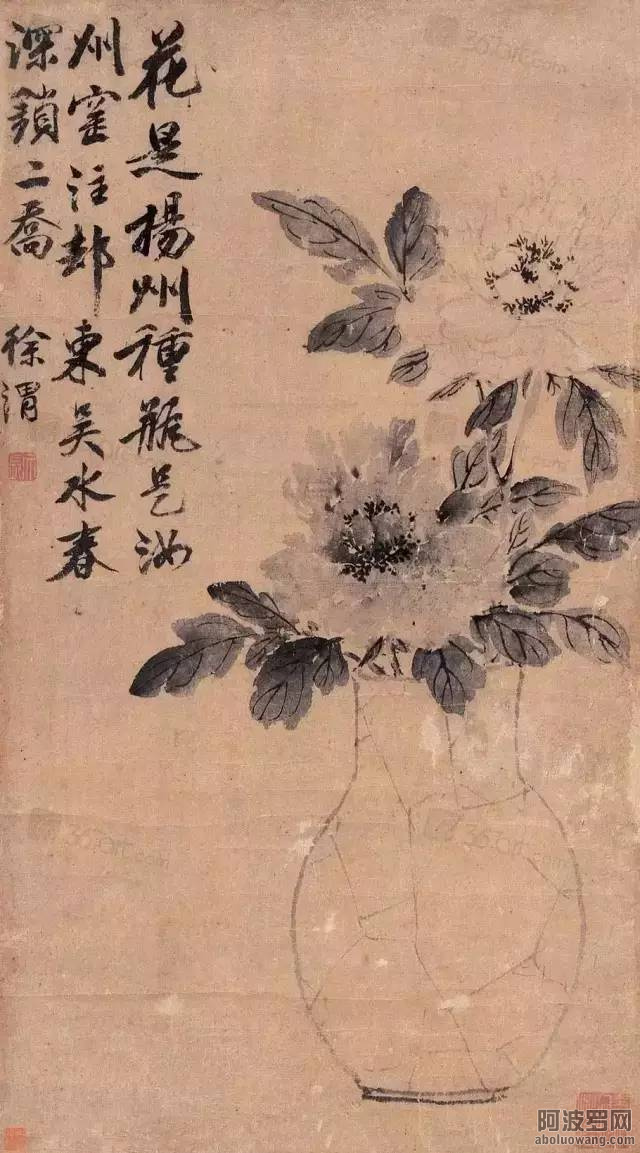 花是揚州種瓶是汝
州窑注却東吳水春
深鎖二喬
徐渭
阿波罗网
aboluowang.com